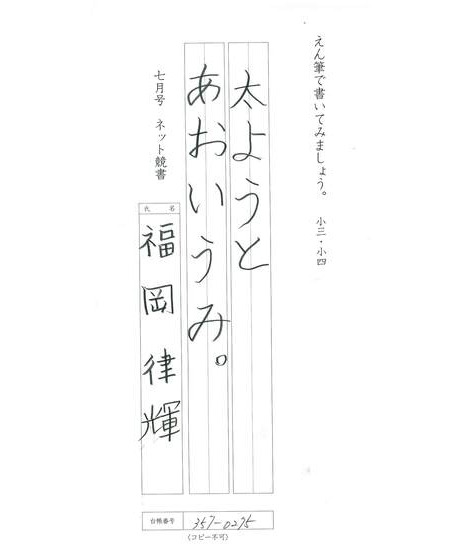 えん筆で書いてみましょう。 小三・小四
太ようと
あおいうみ。
七月号 ネット競書
氏名
福岡律輝
台帳番号 357-0275
(コピー不可)